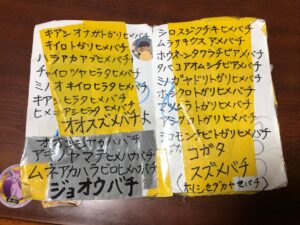 キアシオナガトガリヒメバチ
キイロトガリヒメバチ
ハラアカアブヒメバチ
チャイロツヤヒラタヒメバチ
ミノオキイロヒラタヒメバチ
キアシヒラタヒメバチ
ヒメキアシヒラタヒメバチ
オオスズメバチ
ムネアカハラビロヒメバチ
ジョオウバチ
シロスジクチキヒメバチ
ムラサキウスアメバチ
ホウネンタワラチビアメバチ
タバコアオムシチビアメバチ
ミノガヤドリトガリヒメバチ
シロモンチビトガリヒメバチ
コガタ
スズメバチ